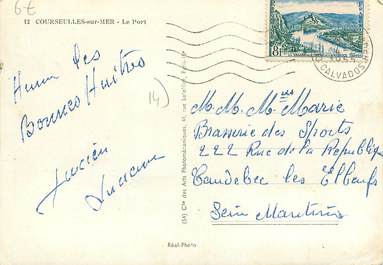 6€
12 COURSEULLES-sur-MER - Le Port
8F
1955
CALVADOS
Hum des
Bonnes Huitres
14)
Lucien
Lucienne
M. M. Mmes Marie
Brasserie des Sports
222 Rue de la République
Caudebec les Elbeufs
Sein Maritime
(54) Cie des Arts Photomécaniques, 44, rue Letellier,
Réal-Photo